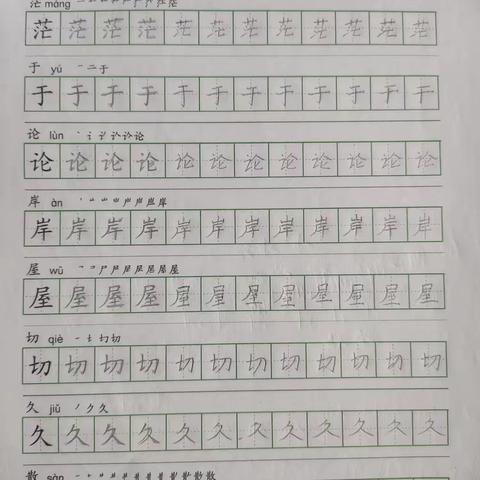 茫 máng
茫 茫 茫 茫 茫 茫 茫 茫 茫 茫 茫 茫
于 yú 一 二 于
于 于 于 于 于 于 于 于 于 于 于 于
论 lùn 论
论 论 论 论 论 论 论 论 论 论 论 论
岸 àn 岸
岸 岸 岸 岸 岸 岸 岸 岸 岸 岸 岸 岸
屋 wū 屋
屋 屋 屋 屋 屋 屋 屋 屋 屋 屋 屋 屋
切 qiè 切
切 切 切 切 切 切 切 切 切 切 切 切
久 jiǔ 丿 ク 久
久 久 久 久 久 久 久 久 久 久 久 久
散 sàn 散